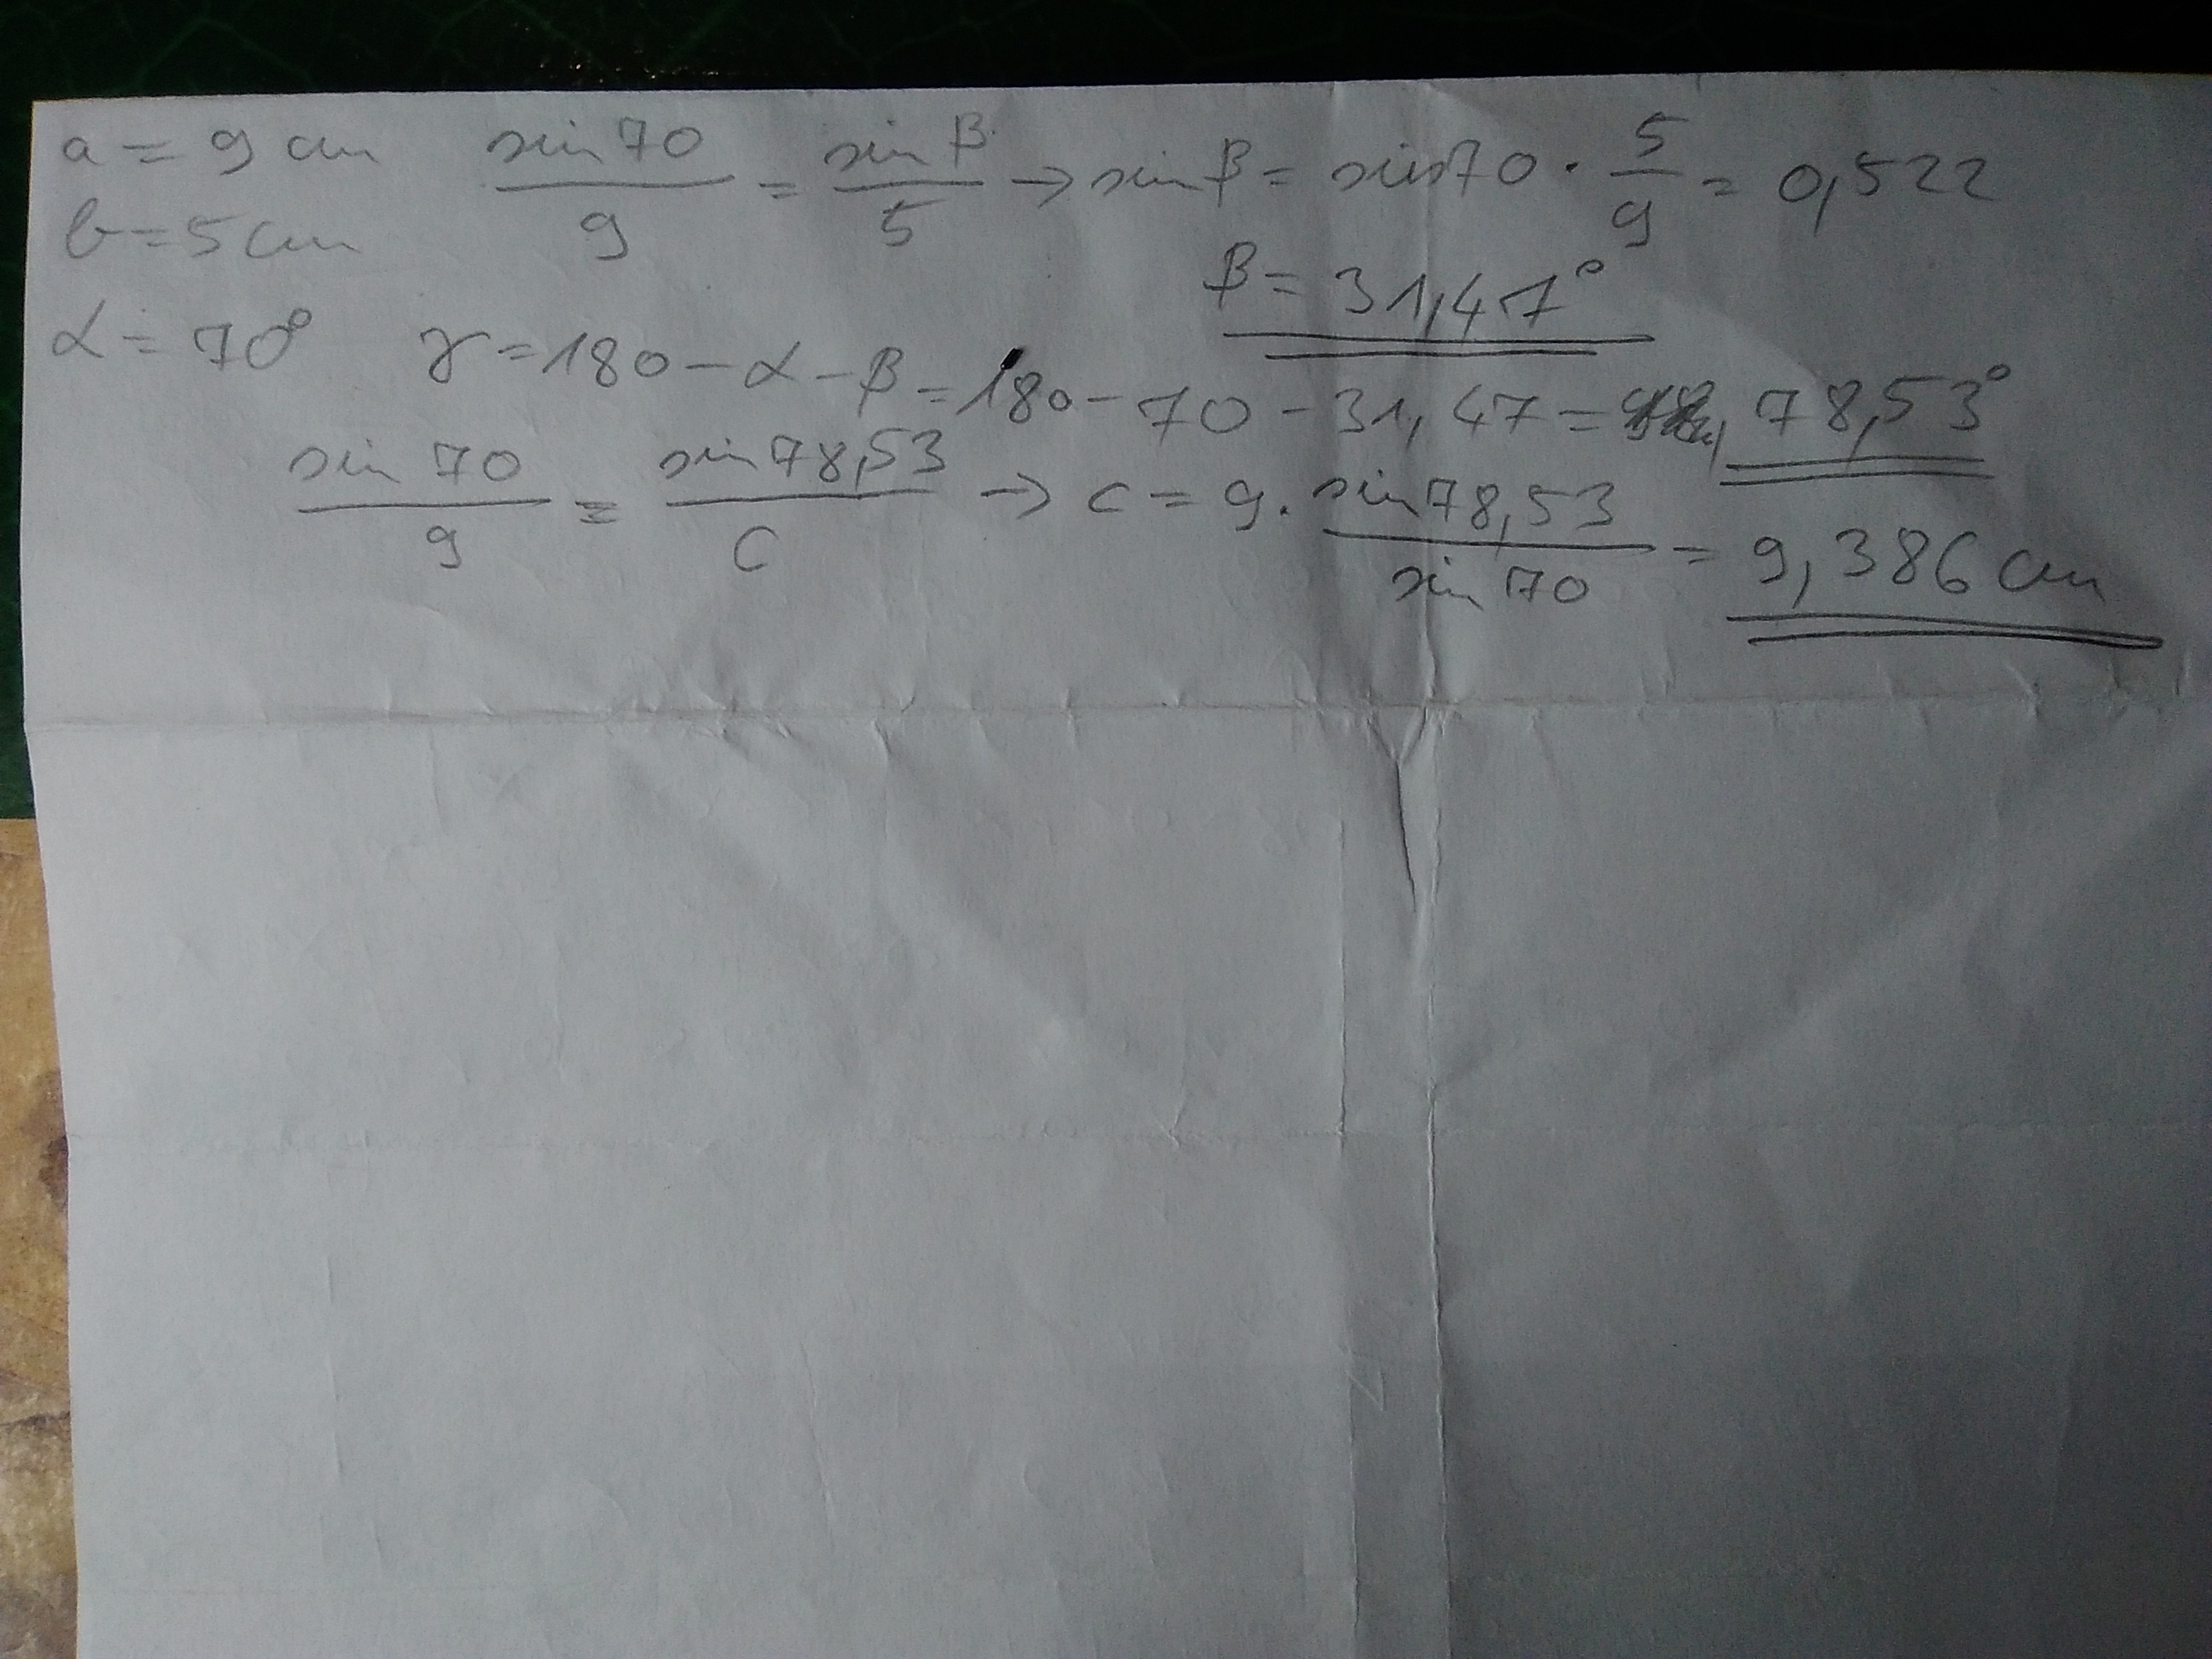 a = 9 cm sin 70 / 9 = sin β / 5 → sin β = sin 70 · 5/9 = 0,522
b = 5 cm β = 31,47°
α = 70° γ = 180 - α - β = 180 - 70 - 31,47 = 78,53°
sin 70 / 9 = sin 78,53 / c → c = 9 · sin 78,53 / sin 70 = 9,386 cm